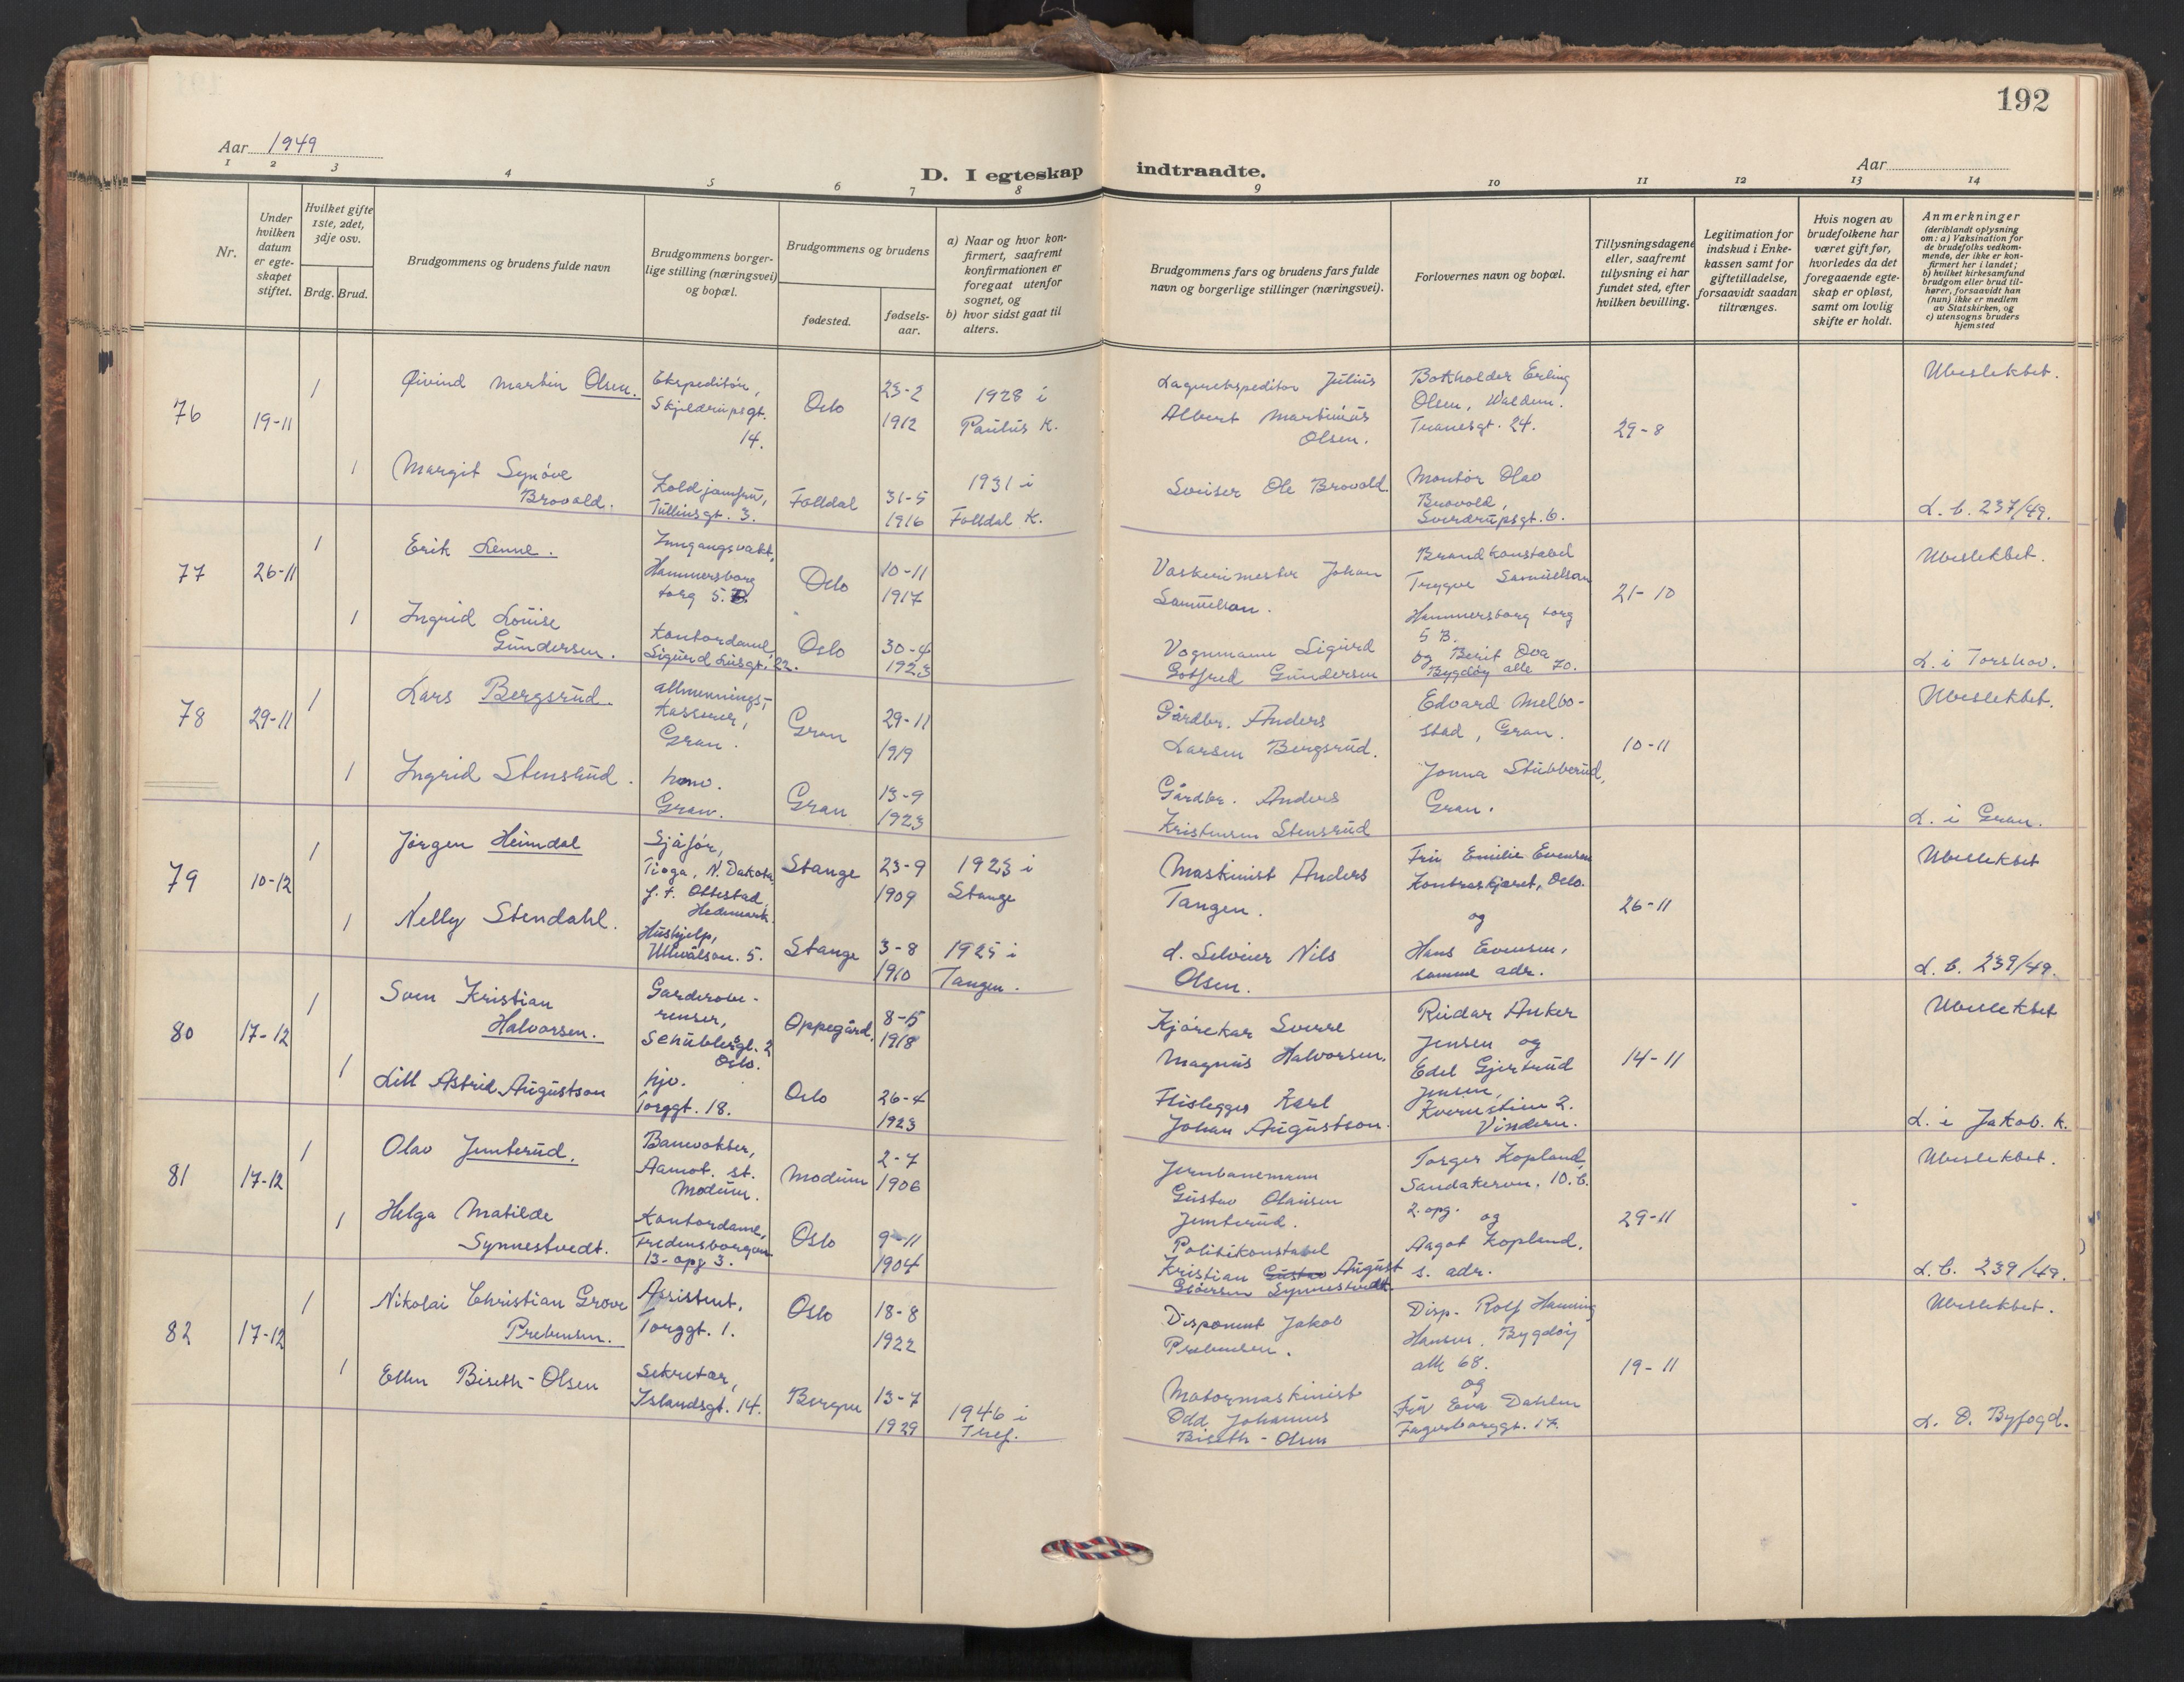 192
Aar 1949
Aar
D. I egteskap indtraadte.
1 2 3 4 5 6 7 8 9 10 11 12 13 14
Nr.
Under hvilken datum er egte-skapet stiftet.
Hvilket gifte 1ste, 2det, 3dje osv.
Brdg. Brud.
Brudgommens og brudens fulde navn
Brudgommens borger-lige stilling (næringsvei) og bopæl.
Brudgommens og brudens
fødested.
fødsels-aar.
a) Naar og hvor kon-firmert, saafremt konfirmationen er foregaat utenfor sognet, og
b) hvor sidst gaat til alters.
Brudgommens fars og brudens fars fulde navn og borgerlige stillinger (næringsvei).
Forlovernes navn og bopæl.
Tillysningsdagene eller, saafremt tillysning ei har fundet sted, efter hvilken bevilling.
Legitimation for indskud i Enke-kassen samt for giftetilladelse, forsaavidt saadan tiltrænges.
Hvis nogen av brudefolkene har været gift før, hvorledes da det foregaaende egte-skap er opløst, samt om lovlig skifte er holdt.
Anmerkninger
(deriblandt oplysning om: a) Vaksination for de brudefolks vedkom-mende, der ikke er kon-firmert her i landet;
b) hvilket kirkesamfund brudgom eller brud til-hører, forsaavidt han (hun) ikke er medlem av Statskirken, og
c) utensogns bruders hjemsted
76
19-11
1
Øivind Martin Olsen.
Ekspeditør,
Skjeldrupsgt.
14.
Oslo
23-2
1912
1928 i
Paulus K.
Lagerekspeditør Julius
Albert Martinius
Olsen.
Bokholder Erling
Olsen, Waldem.
Tranesgt. 24.
29-8
Ubeslektet.
1
Margit Synøve
Brovold.
Koldjomfru,
Tullinsgt. 3.
Folldal
31-5
1916
1931 i
Folldal K.
Sveiser Ole Brovold.
Montør Olav
Brovold,
Sverdrupsgt. 6.
L. b. 237/49.
77
26-11
1
Erik Lenne.
Inngangsvakt,
Hammersborg
torg 5.B.
Oslo
10-11
1917
Vaskerimester Johan
Samuelson.
Brandkonstabel
Trygve Samuelson
Hammersborg torg
5 B.
21-10
Ubeslektet.
1
Ingrid Louise
Gundersen.
Kontordame,
Sigurd Lusgt. 22.
Oslo
30-4
1923
Vognmann Sigurd
Gotfred Gundersen
og Berit Ova
Bygdøy alle 70.
L. i Torshov.
78
29-11
1
Lars Bergsrud.
allmennings-
kasserer,
Gran.
Gran
29-11
1919
Gårdbr. Anders
Larsen Bergsrud.
Edvard Melbo-
stad, Gran.
10-11
Ubeslektet.
1
Ingrid Stensrud.
hmv.
Gran.
Gran
13-9
1923
Gårdbr. Anders
Kristensen Stensrud
Jonna Stubberud,
Gran.
L. i Gran.
79
10-12
1
Jørgen Heimdal
Sjåfør,
Tioga, N. Dakota,
f. t. Ottestad,
Hedemark.
Stange
23-9
1909
1923 i
Stange
Maskinist Anders
Tangen.
Fru Emilie Evensen
Kontraskjæret, Oslo.
og
26-11
Ubeslektet
1
Nelly Stendahl.
Hushjelp,
Ullevålsvn. 5.
Stange
3-8
1910
1925 i
Tangen.
d. Selveier Nils
Olsen.
Hans Evensen,
samme adr.
L. b. 239/49.
80
17-12
1
Sven Kristian
Halvorsen.
Garderobe-
renser,
Schüblersgt. 2
Oslo.
Oppegård.
8-5
1918
Kjørekar Sverre
Magnus Halvorsen.
Reidar Anker
Jensen og
Edel Gjertrud
Jensen,
14-11
Ubeslektet
1
Lill Astrid Augustson
hjv.
Torggt. 18.
Oslo
26-4
1923
Flislegger Karl
Johan Augustson.
Kvernstien 2.
Vindern.
L. i Jakob. K.
81
17-12
1
Olav Jemterud.
Banevokter,
Aamot. st.
Modum.
Modum
2-7
1906
Jernbanemann
Gustav Olausen
Jemterud.
Torger Kopland,
Sandakervn. 10.b.
2. opg.
og
29-11
Ubeslektet.
1
Helga Matilde
Synnestvedt.
Kontordame,
Fredensborgvn
13-opg 3.
Oslo
9-11
1904
Politikonstabel
Kristian Gustav August
Syvertsen Synnestvedt.
Aagot Kopland.
s. adr.
L. b. 239/49.
82
17-12
1
Nikolai Christian Grove
Prebensen.
Assistent,
Torggt. 1.
Oslo
18-8
1922
Disponent Jakob
Prebensen.
Disp. Rolf Henning
Hansen, Bygdøy
alle 68.
og
19-11
Ubeslektet.
1
Ellen Biseth-Olsen
Sekretær,
Islandsgt. 14.
Bergen
13-7
1929
1946 i
Tref.
Motormaskinist
Odd Johannes
Biseth-Olsen
Fru Eva Dahlen
Fagerborggt. 17.
L. O. Byfogd.